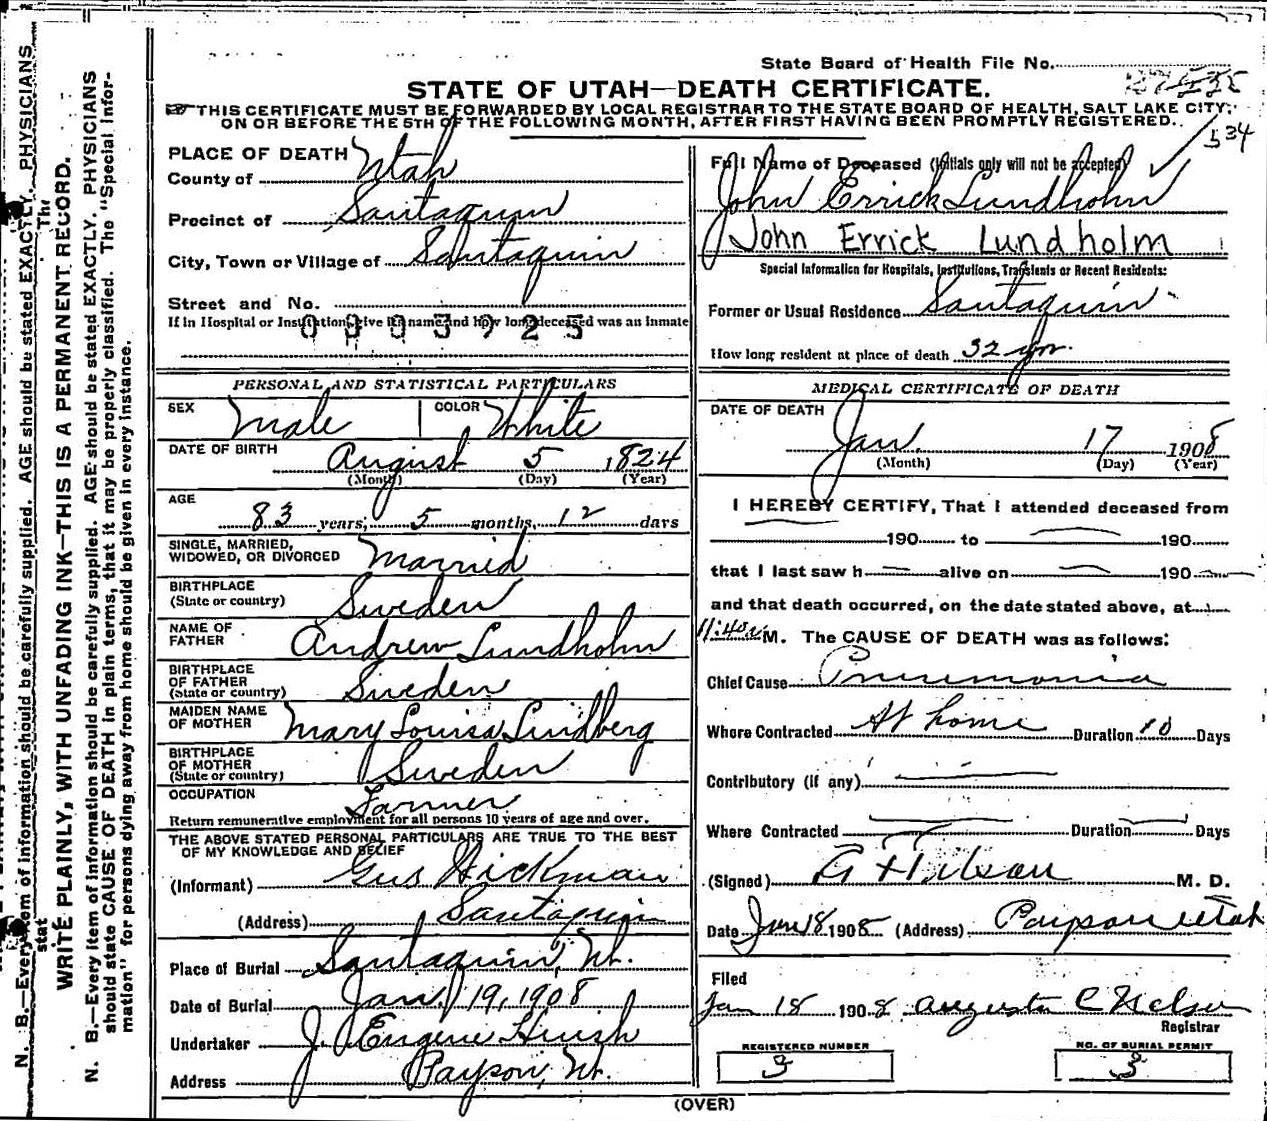 State Board of Health File No.
534
STATE OF UTAH—DEATH CERTIFICATE.
THIS CERTIFICATE MUST BE FORWARDED BY LOCAL REGISTRAR TO THE STATE BOARD OF HEALTH, SALT LAKE CITY,
ON OR BEFORE THE 5TH OF THE FOLLOWING MONTH, AFTER FIRST HAVING BEEN PROMPTLY REGISTERED.
PLACE OF DEATH
County of Utah
Precinct of Santaquin
City, Town or Village of Santaquin
Street and No.
If in Hospital or Institution, give its name and how long deceased was an inmate
0003925
PERSONAL AND STATISTICAL PARTICULARS
SEX Male COLOR White
DATE OF BIRTH August 5 1824
(Month) (Day) (Year)
AGE
83 years, 5 months, 12 days
SINGLE, MARRIED,
WIDOWED, OR DIVORCED Married
BIRTHPLACE
(State or country) Sweden
NAME OF
FATHER Andrew Lundholm
BIRTHPLACE
OF FATHER
(State or country) Sweden
MAIDEN NAME
OF MOTHER Mary Louisa Lindberg
BIRTHPLACE
OF MOTHER
(State or country) Sweden
OCCUPATION Farmer
Return remunerative employment for all persons 10 years of age and over.
THE ABOVE STATED PERSONAL PARTICULARS ARE TRUE TO THE BEST
OF MY KNOWLEDGE AND BELIEF
(Informant) Gus Hickman
(Address) Santaquin
Place of Burial Santaquin, Ut.
Date of Burial Jan. 19, 1908
Undertaker J. Eugene Huish
Address Payson, Ut.
Full Name of Deceased (Initials only will not be accepted)
John Errick Lundholm
John Errick Lundholm
Special Information for Hospitals, Institutions, Transients or Recent Residents:
Former or Usual Residence Santaquin
How long resident at place of death 32 yrs.
MEDICAL CERTIFICATE OF DEATH
DATE OF DEATH
Jan. 17 1908
(Month) (Day) (Year)
I HEREBY CERTIFY, That I attended deceased from
190 to 190
that I last saw h alive on 190
and that death occurred, on the date stated above, at
11:40 a M. The CAUSE OF DEATH was as follows:
Chief Cause Pneumonia
Where Contracted At home Duration 10 Days
Contributory (if any)
Where Contracted Duration Days
(Signed) M. D.
Date Jan 18 1908 (Address) Payson Utah
Filed
Jan 18 1908 Augusta C Nelson
Registrar
REGISTERED NUMBER
3
NO. OF BURIAL PERMIT
3
(OVER)
WRITE PLAINLY, WITH UNFADING INK—THIS IS A PERMANENT RECORD.
N. B.—Every item of information should be carefully supplied. AGE should be stated EXACTLY. PHYSICIANS
should state CAUSE OF DEATH in plain terms, that it may be properly classified. The "Special Infor-
mation" for persons dying away from home should be given in every instance.
N. B.—Every item of information should be carefully supplied. AGE should be stated EXACTLY. PHYSICIANS
stat
The